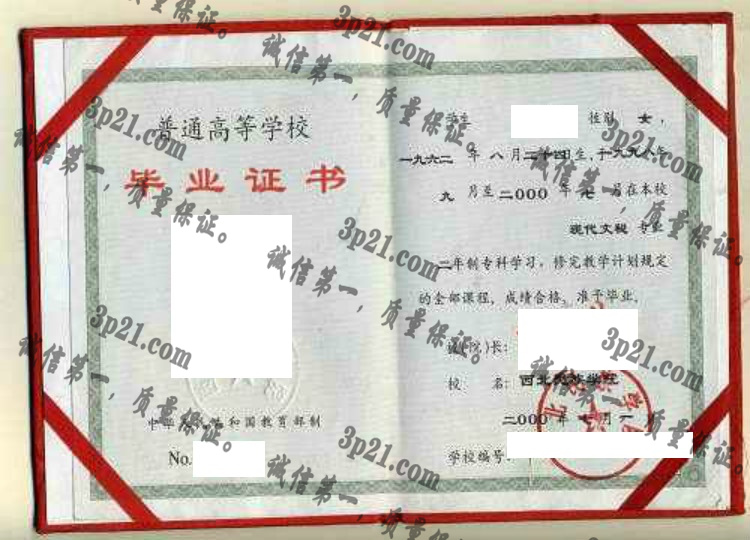 普通高等学校
毕业证书
中华人民共和国教育部制
No.
学生 性别 女,
一九六二 年 八 月 二十四 生, 于 一九九八 年
九 月至 二000 年 七 月在本校
现代文秘 专业
二年制专科学习, 修完教学计划规定
的全部课程, 成绩合格, 准予毕业。
校(院)长:
校 名: 西北 学院
二000 年 七 月 一
学校编号:
3p21.com
诚信第一,质量保证。
3p21.com
诚信第一,质量保证。
3p21.com
诚信第一,质量保证。
3p21.com
诚信第一,质量保证。
3p21.com
诚信第一,质量保证。
3p21.com
诚信第一,质量保证。
3p21.com
诚信第一,质量